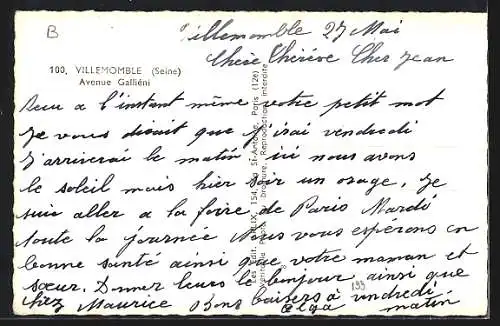 B
Villemomble 27 Mai
Chère Thérève Cher Jean
100, VILLEMOMBLE (Seine)
Avenue Galliéni
Reçu a l'instant même votre petit mot
Je vous disait que j'irai vendredi
J'arriverai le matin ici nous avons
le soleil mais hier soir un orage, Je
suis aller a la foire de Paris Mardi
toute la journée Nous vous espérons en
bonne santé ainsi que votre maman et
sœur. Donner leurs le bonjour ainsi que
chez Maurice Bons baisers à vendredi
Olga matin
193
St-Antoine, Paris (12e)
Reproduction interdite